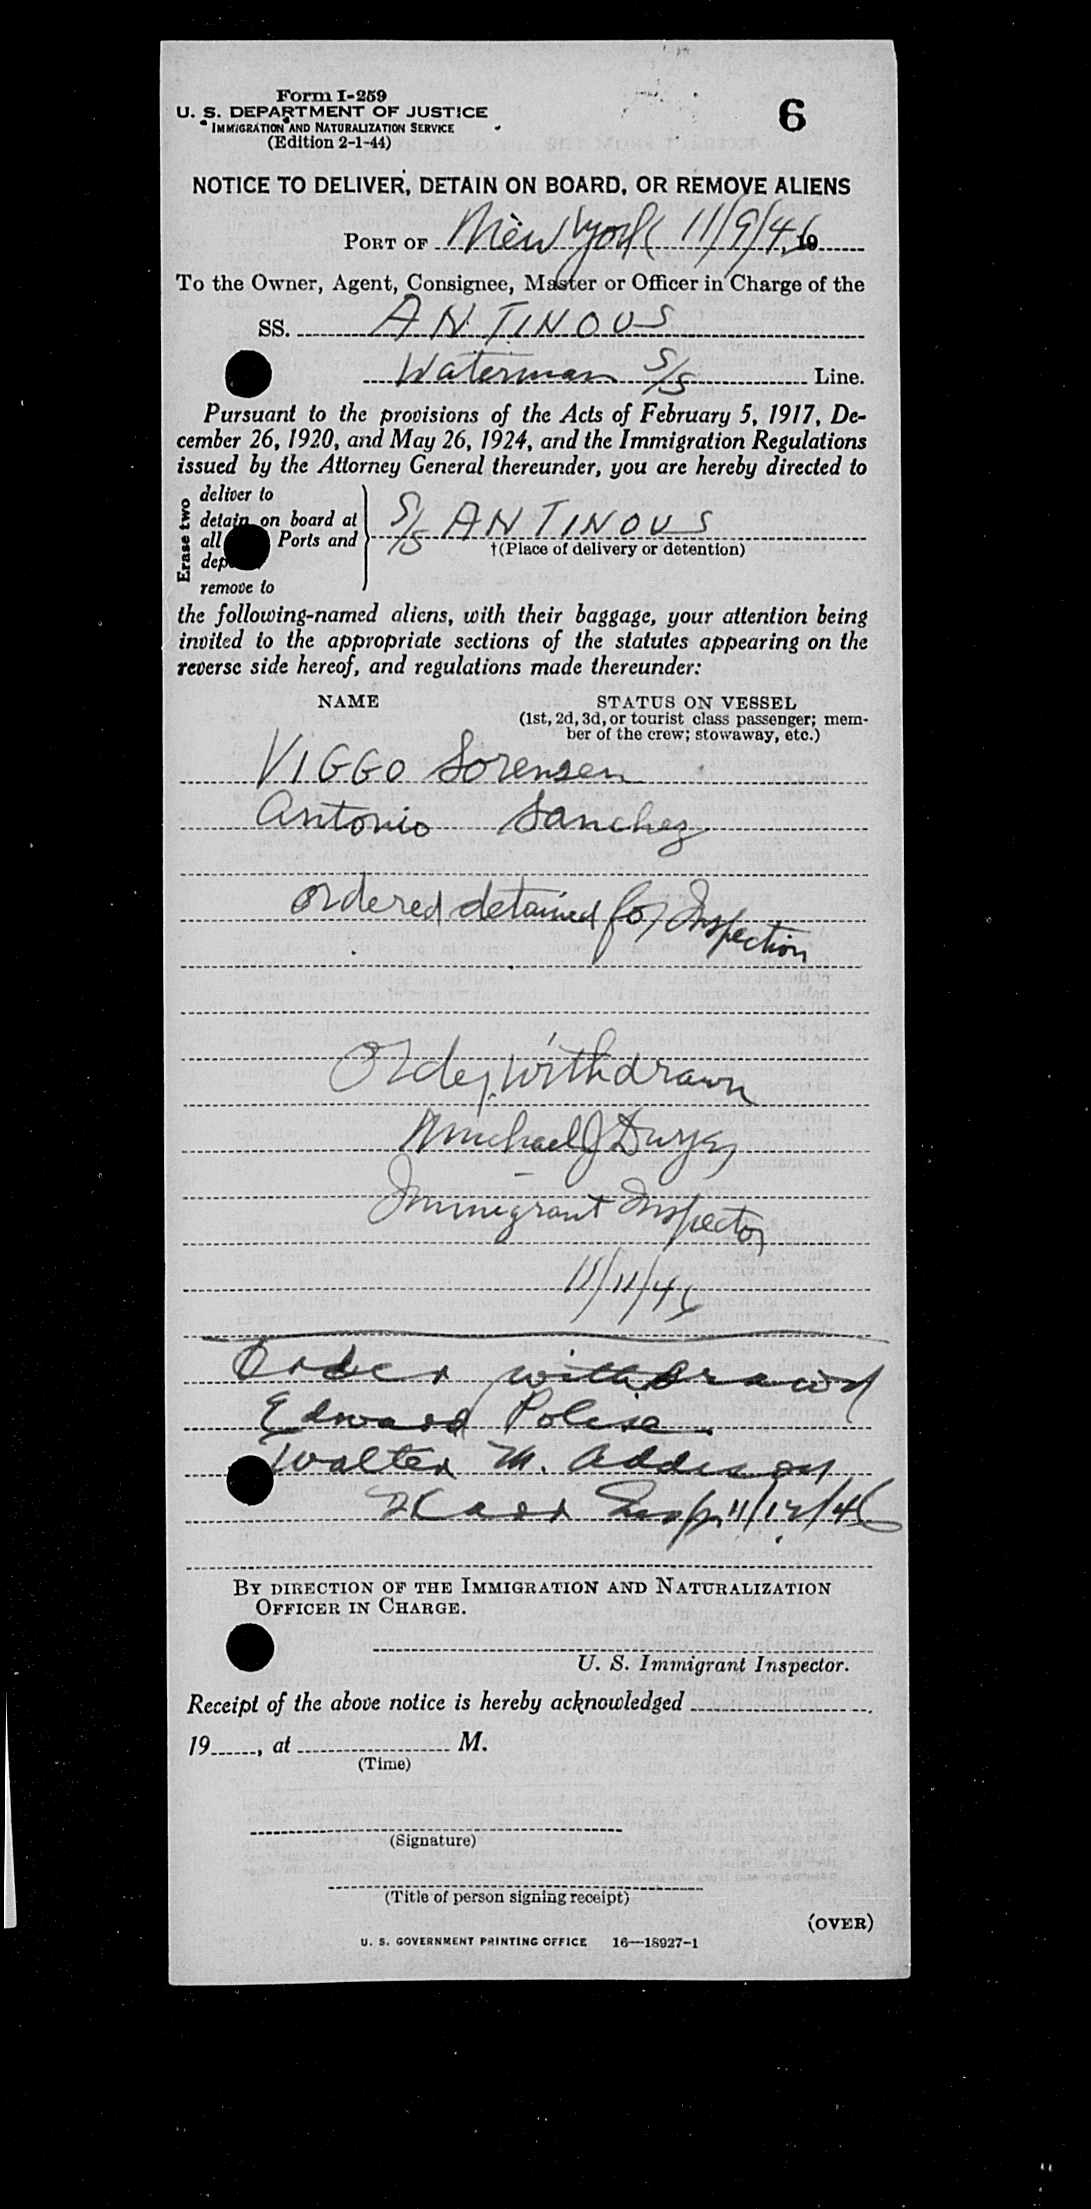 Form I-259
U. S. DEPARTMENT OF JUSTICE
IMMIGRATION AND NATURALIZATION SERVICE
(Edition 2-1-44)
6
NOTICE TO DELIVER, DETAIN ON BOARD, OR REMOVE ALIENS
PORT OF New York 11/9/46 19
To the Owner, Agent, Consignee, Master or Officer in Charge of the
SS. ANTINOUS
Waterman S/S Line.
Pursuant to the provisions of the Acts of February 5, 1917, De-
cember 26, 1920, and May 26, 1924, and the Immigration Regulations
issued by the Attorney General thereunder, you are hereby directed to
Erase two
deliver to
detain on board at
all Ports and
remove to
S/S ANTINOUS
†(Place of delivery or detention)
the following-named aliens, with their baggage, your attention being
invited to the appropriate sections of the statutes appearing on the
reverse side hereof, and regulations made thereunder:
NAME STATUS ON VESSEL
(1st, 2d, 3d, or tourist class passenger; mem-
ber of the crew; stowaway, etc.)
VIGGO Sorensen
Antonio Sanchez
ordered detained for Inspection
Order withdrawn
Michael J Dwyer
Immigrant Inspector
11/11/46
Order withdrawn
Edward Polise
Walter M. Addison
Insp 11/12/46
BY DIRECTION OF THE IMMIGRATION AND NATURALIZATION
OFFICER IN CHARGE.
U. S. Immigrant Inspector.
Receipt of the above notice is hereby acknowledged
19, at M.
(Time)
(Signature)
(Title of person signing receipt)
(OVER)
U. S. GOVERNMENT PRINTING OFFICE 16—18927-1